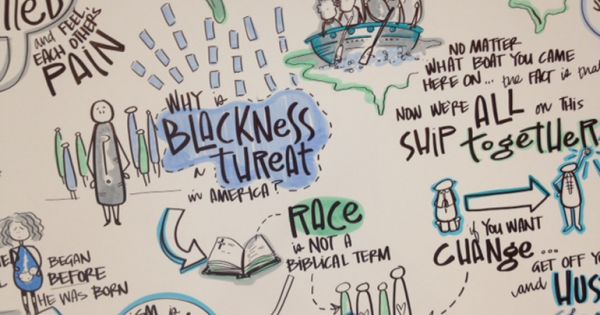 and FEEL
EACH OTHER'S
PAIN
WHY is
BLACKNESS
A
THREAT
in AMERICA?
NO MATTER
WHAT BOAT YOU CAME
HERE ON... the FACT is that
NOW WE'RE ALL on THIS
SHIP together
RACE
is NOT A
BIBLICAL TERM
if YOU WANT
CHANGE...
GET OFF YO
and HUS
BEGAN
BEFORE
HE WAS BORN